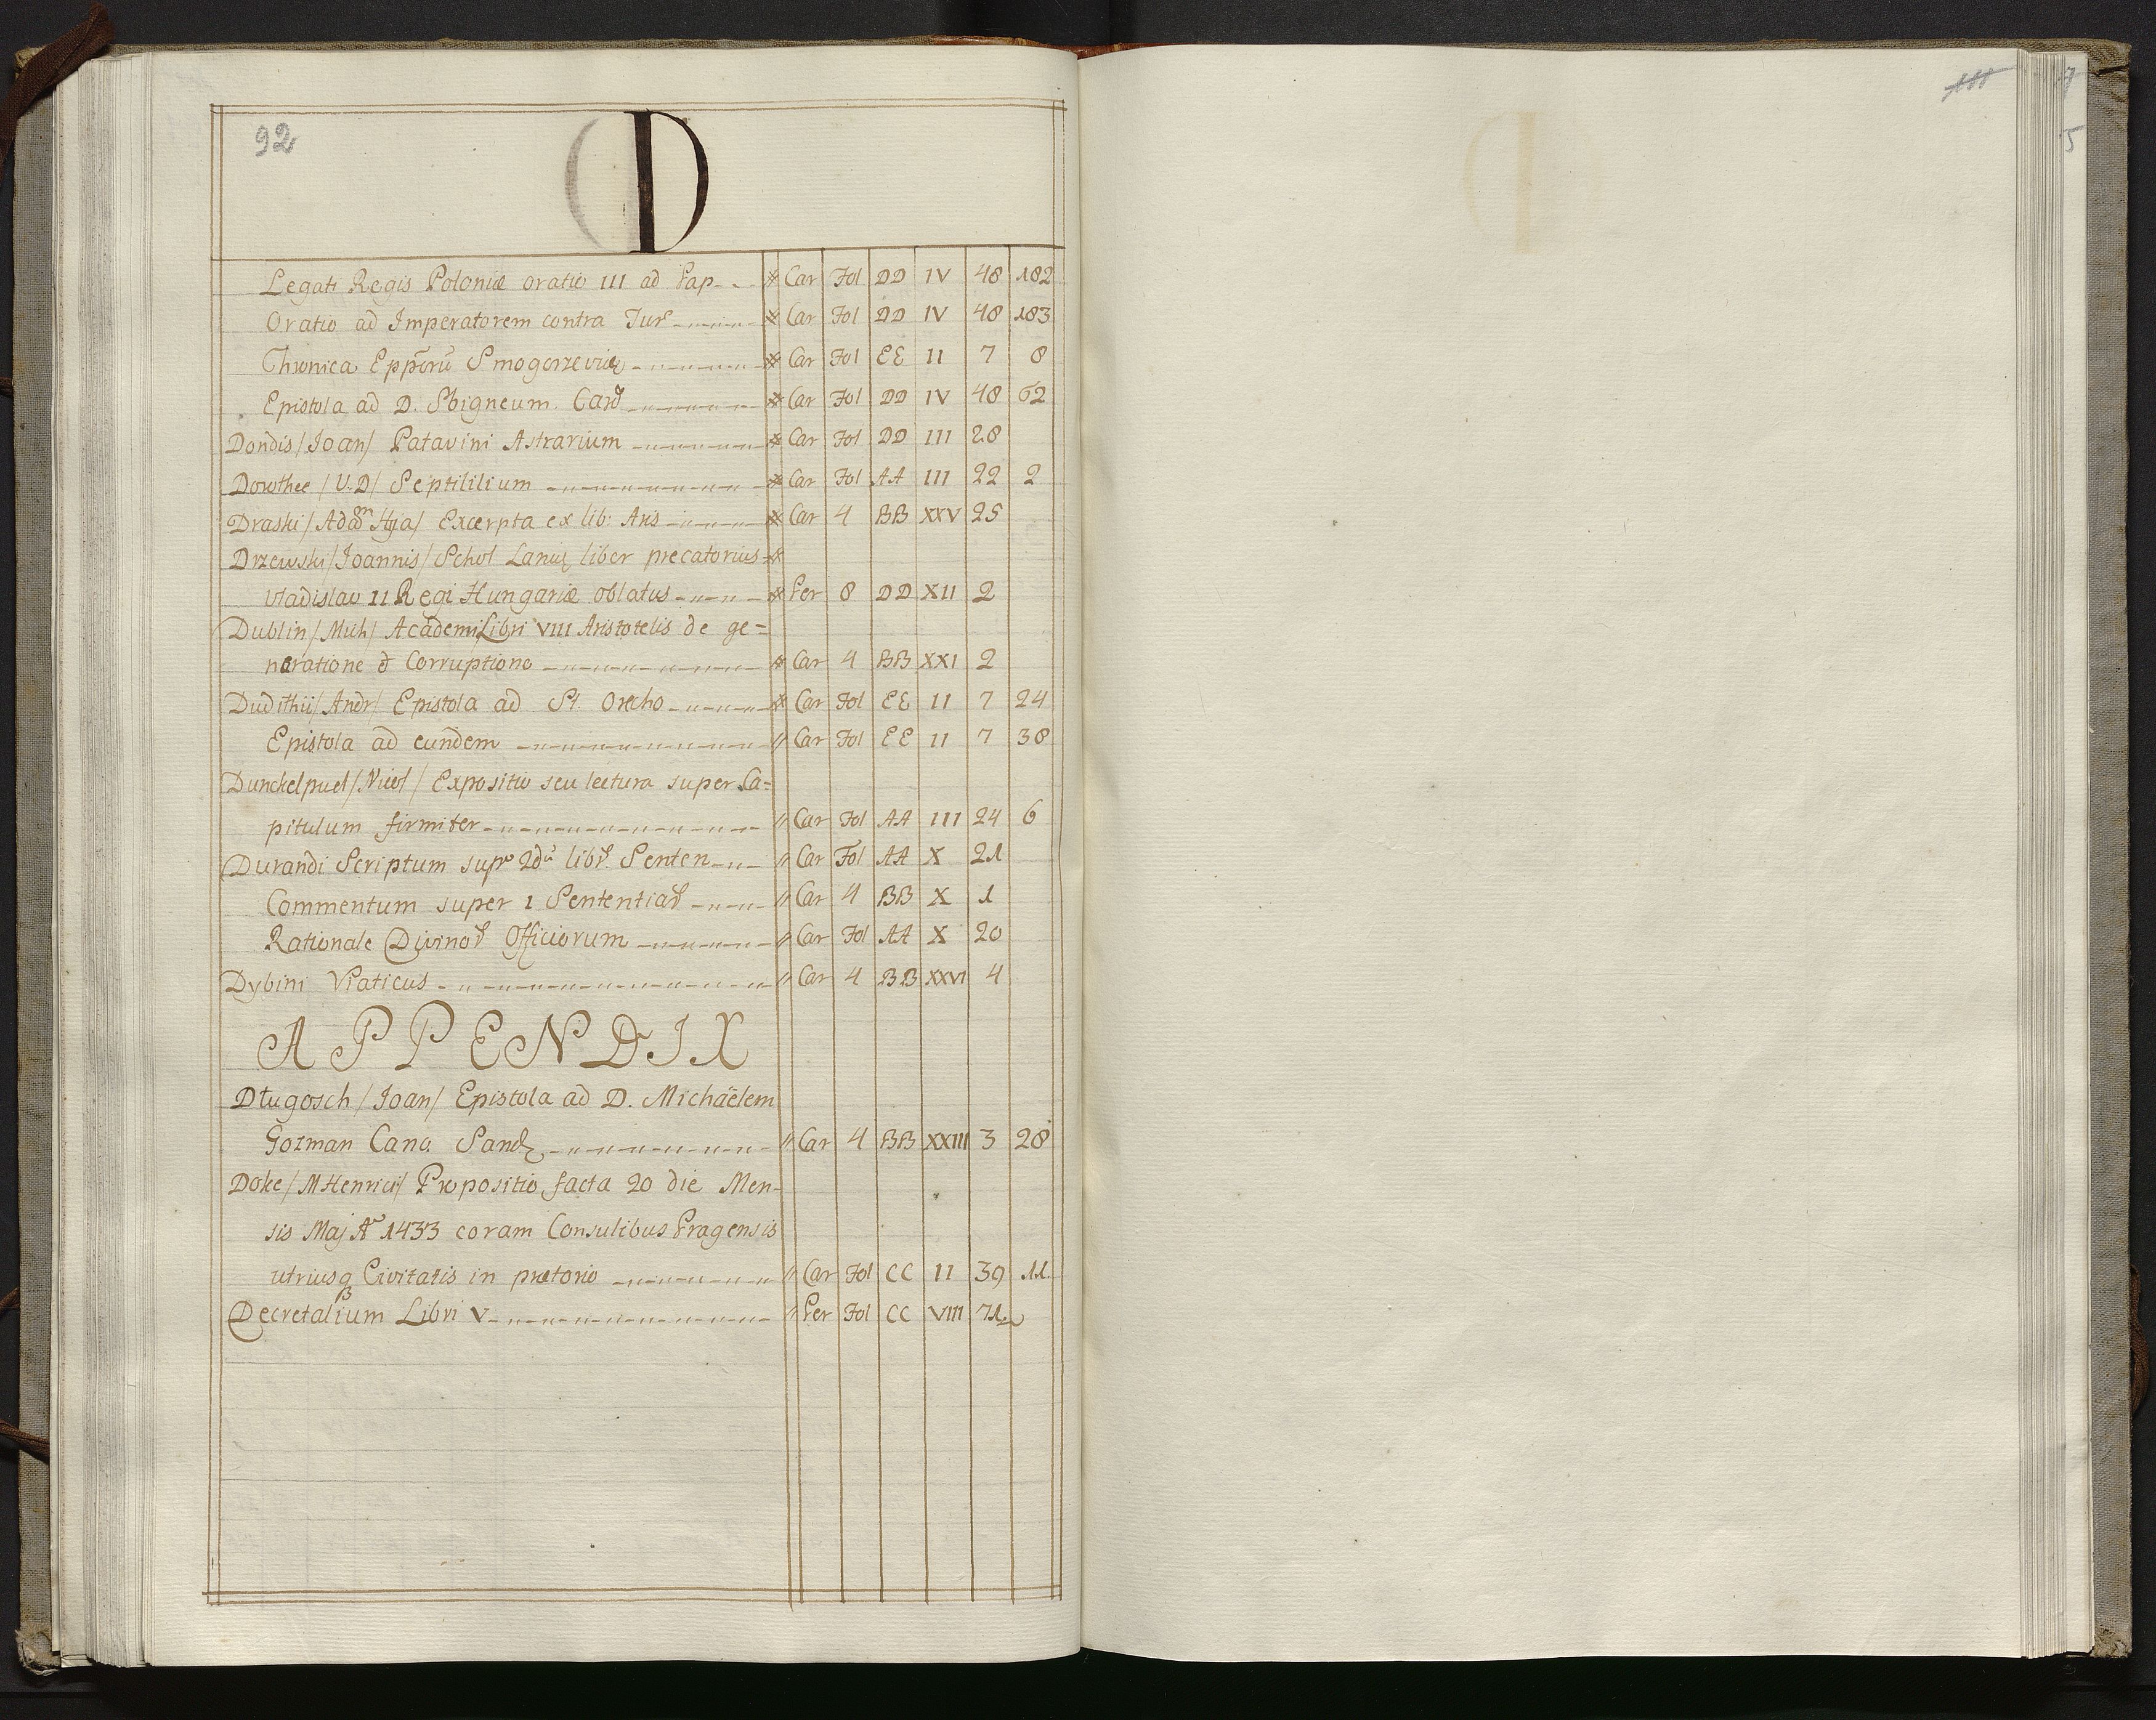 92
D
Legati Regis Poloniæ oratio III ad Pap Car Fol DD IV 48 182
Oratio ad Imperatorem contra Tur Car Fol DD IV 48 183
Chronica Eppõrũ Smogorzevieɳ Car Fol EE II 7 8
Epistola ad D. Sbigneum Card Car Fol DD IV 48 62
Dondis /Joan/ Patavini Astrarium Car Fol DD III 28
Dorothee /U.D/ Septililium Car Fol AA III 22 2
Draski /Adam / Excerpta ex lib: Aris Car 4 BB XXV 25
Drzewski /Joannis/ Schol liber precatorius
Vladislao II Regi Hungariæ oblatus Per 8 DD XII 2
Dublin /Mich/ Academi Libri VIII Aristotelis de ge=
neratione & Corruptione Car 4 BB XXI 2
Dudithii /Andr/ Epistola ad St. Orecho Car Fol EE II 7 24
Epistola ad eundem Car Fol EE II 7 38
Dunckelpuel /Nicol/ Expositio seu lectura super Ca=
pitulum firmiter Car Fol AA III 24 6
Durandi Scriptum supr 2dũ libr. Senten Car Fol AA X 21
Commentum super 1 Sententiar Car 4 BB X 1
Rationale Divinor Officiorum Car Fol AA X 20
Dybini Viaticus Car 4 BB XXVI 4
APPENDIX
Długosch /Joan/ Epistola ad D. Michaëlem
Gozman Cano. Sand Car 4 BB XXIII 3 28
Doke /M Henrici/ Propositio facta 20 die Men-
sis Maj Aº 1433 coram Consulibus Pragensis
utriusq Civitatis in prætorio Car Fol CC II 39 11.
Decretalium Libri V Per Fol CC VIII 71
7
5